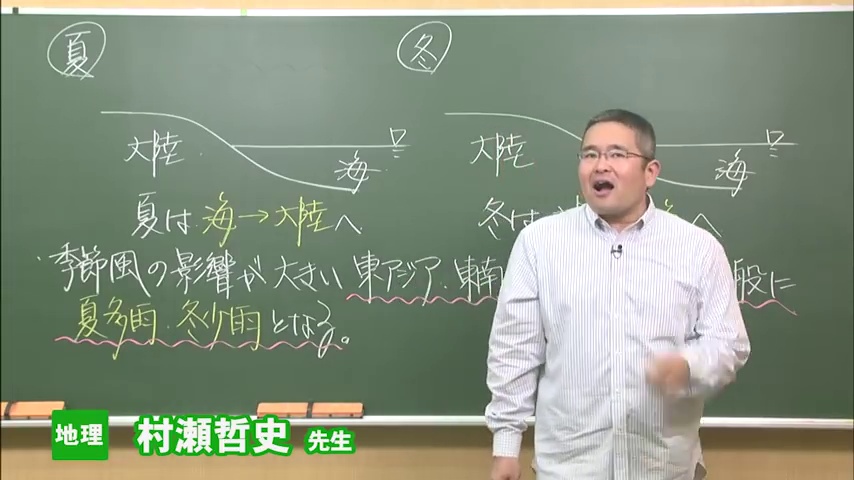 夏
冬
大陸
海
大陸
海
夏は 海→大陸へ
冬は へ
季節風の影響が大きい 東アジア・東南 般に
夏多雨・冬少雨となる。
地理 村瀬哲史 先生